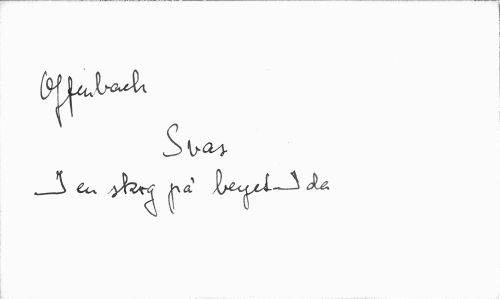 Offenbach
Svas
I en skog på berget Ida